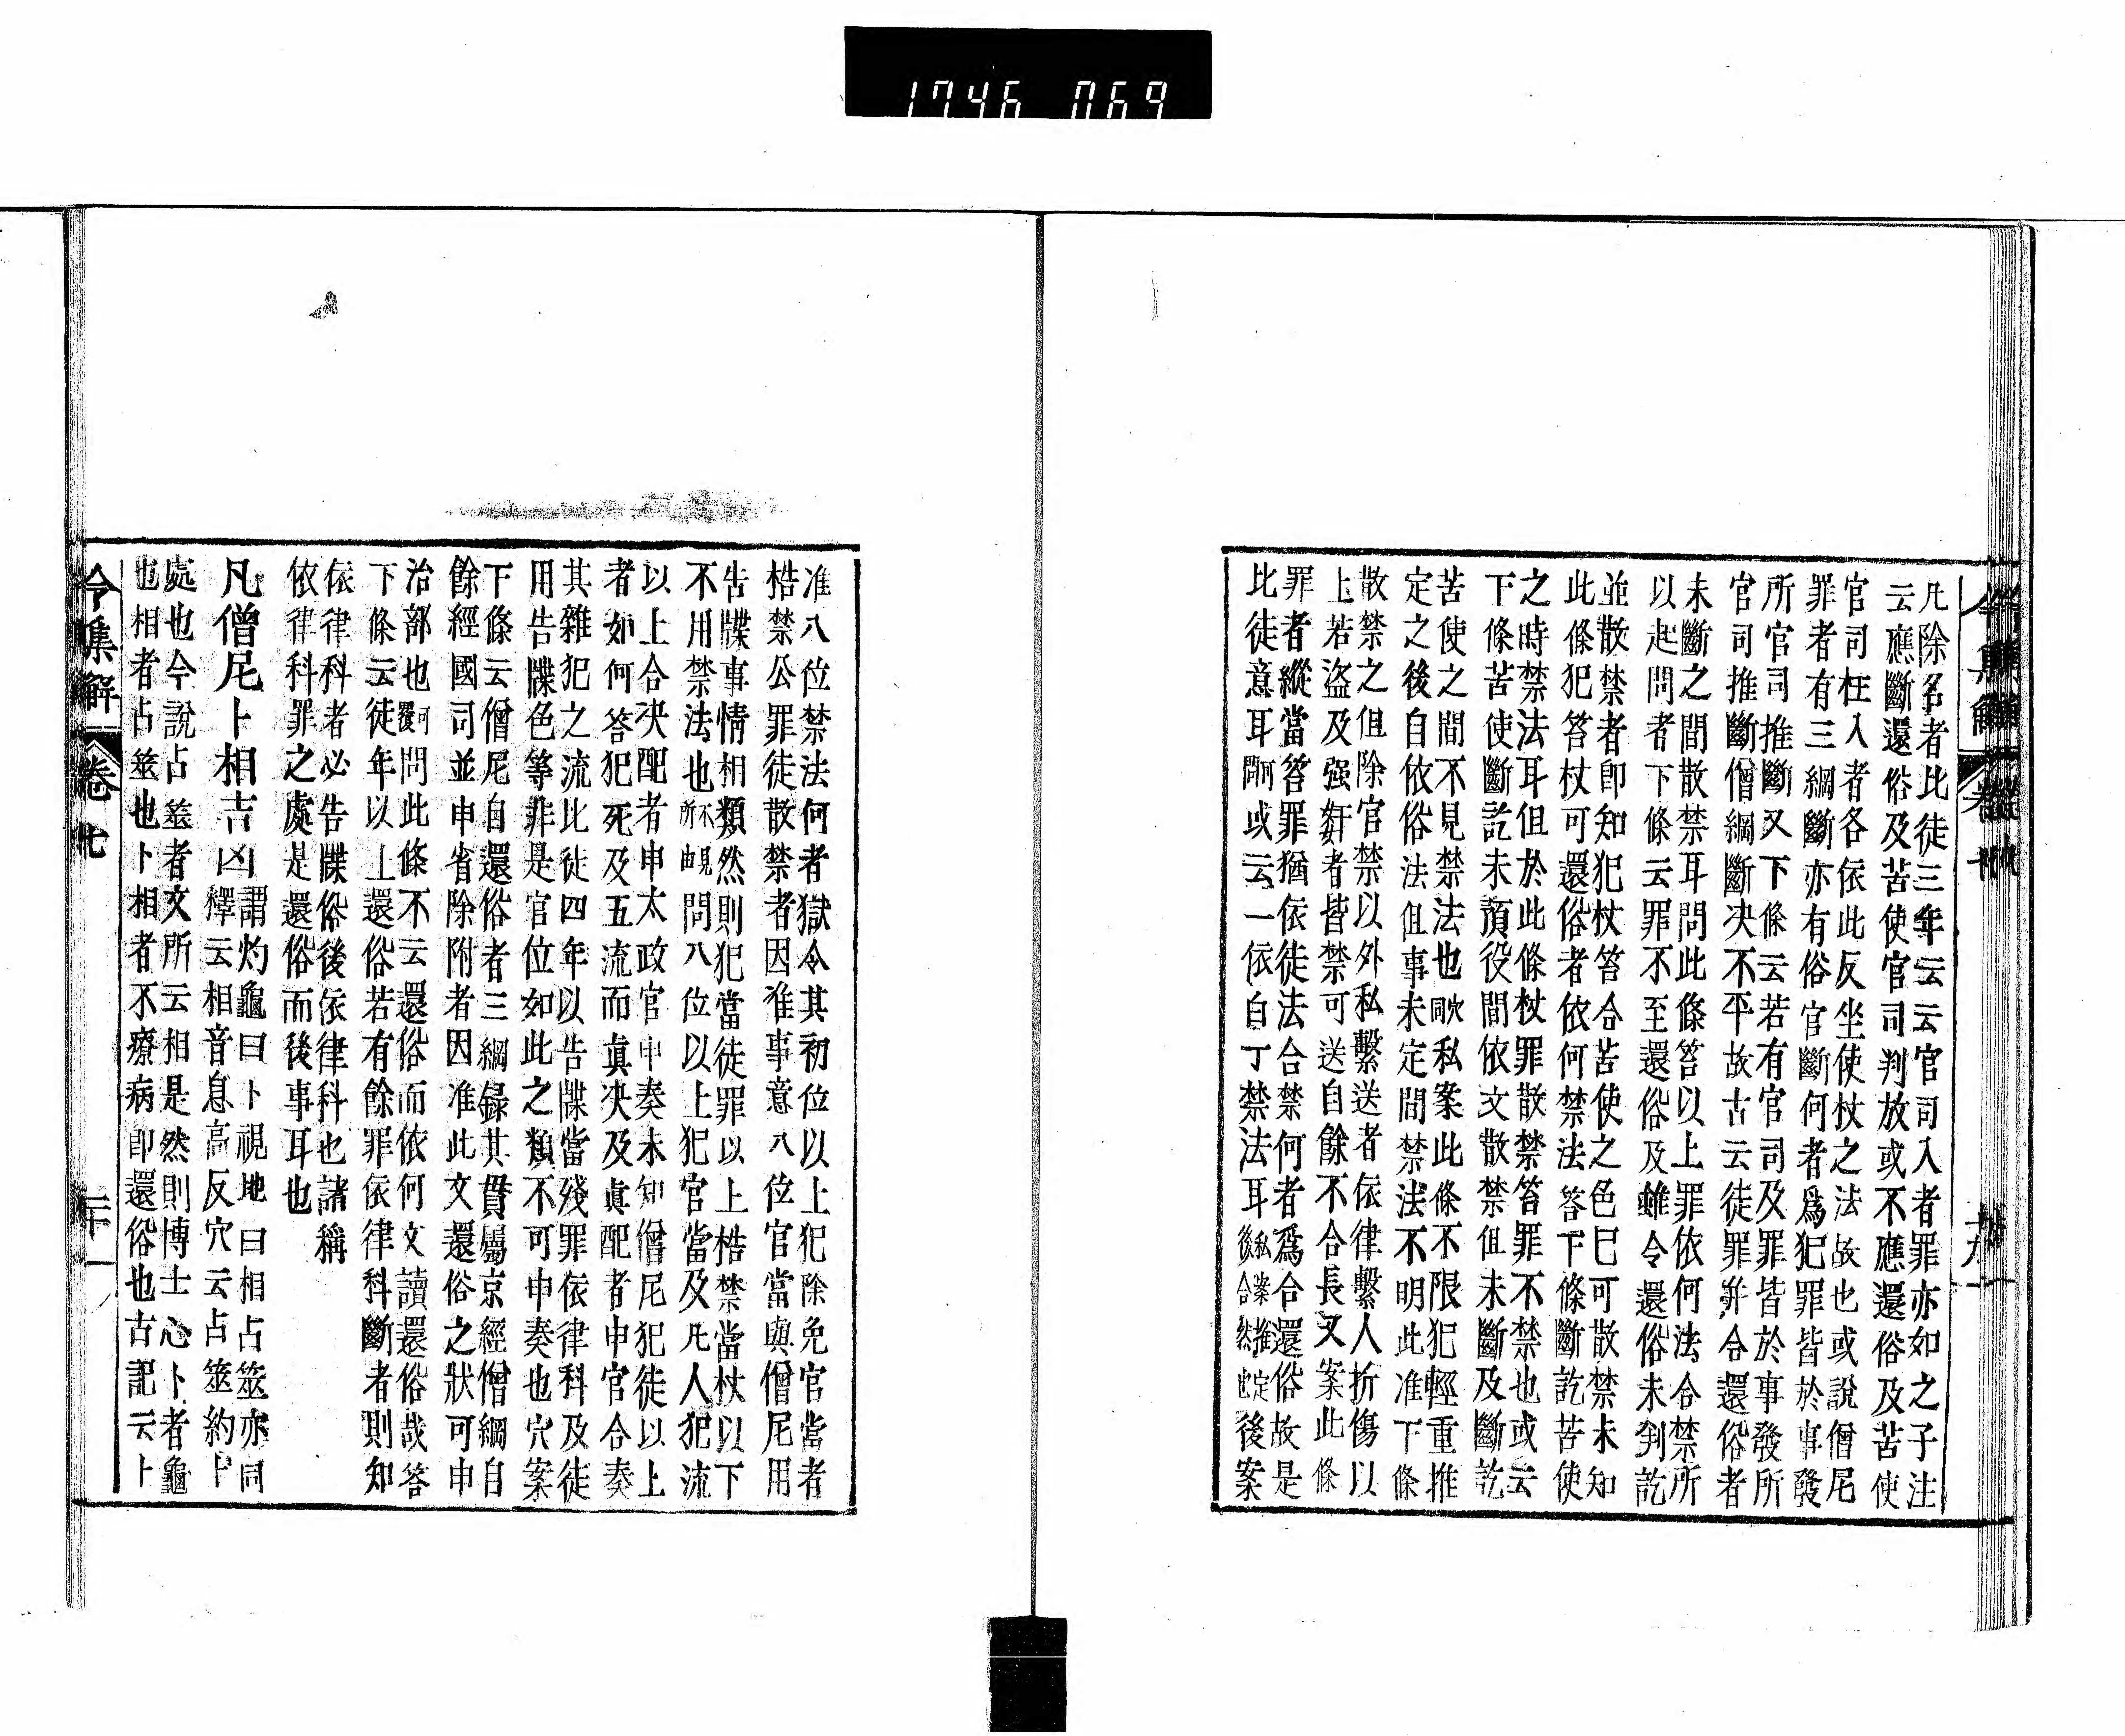 1746 069
凡除名者比徒三年云云官司入者罪亦如之子注
云應斷還俗及苦使官司判放或不應還俗及苦使
官司枉入者各依此反坐使杖之法故也或說僧尼
罪者有三綱斷亦有俗官斷何者爲犯罪皆於事發
所官司推斷又下條云若有官司及罪皆於事發所
官司推斷僧綱斷决不平故古云徒罪并合還俗者
未斷之間散禁耳問此條笞以上罪依何法合禁所
以起問者下條云罪不至還俗及雖令還俗未判訖
並散禁者卽知犯杖笞合苦使之色巳可散禁未知
此條犯笞杖可還俗者依何禁法答下條斷訖苦使
之時禁法耳但於此條杖罪散禁笞罪不禁也或云
下條苦使斷訖未預役間依文散禁但未斷及斷訖
苦使之間不見禁法也歟私案此條不限犯輕重推
定之後自依俗法但事未定間禁法不明此准下條
散禁之但除官禁以外私繫送者依律繫人折傷以
上若盜及强姧者皆禁可送自餘不合長又案此條
罪者縱當笞罪猶依徒法合禁何者爲合還俗故是
比徒意耳問何或云一依白丁禁法耳私案推定後合然也後案
准八位禁法何者獄令其初位以上犯除免官當者
梏禁公罪徒散禁者因准事意八位官當與僧尼用
告牒事情相類然則犯當徒罪以上梏禁當杖以下
不用禁法也不見所由問八位以上犯官當及凡人犯流
以上合决配者申太政官申奏未知僧尼犯徒以上
者如何答犯死及五流而眞决及眞配者申官合奏
其雜犯之流比徒四年以告牒當殘罪依律科及徒
用告牒色等非是官位如此之類不可申奏也穴案
下條云僧尼自還俗者三綱録其貫屬京經僧綱自
餘經國司並申省除附者因准此文還俗之狀可申
治部也可覆問此條不云還俗而依何文讀還俗哉答
下條云徒年以上還俗若有餘罪依律科斷者則知
依律科者必告牒俗後依律科也諸稱
依律科罪之處是還俗而後事耳也
凡僧尼卜相吉凶謂灼龜曰卜視地曰相占筮亦同
釋云相音息高反穴云占筮約卜
處也今說占筮者文所云相是然則博士心卜者龜
也相者占筮也卜相者不療病卽還俗也古記云卜
令集解 卷七 二十一